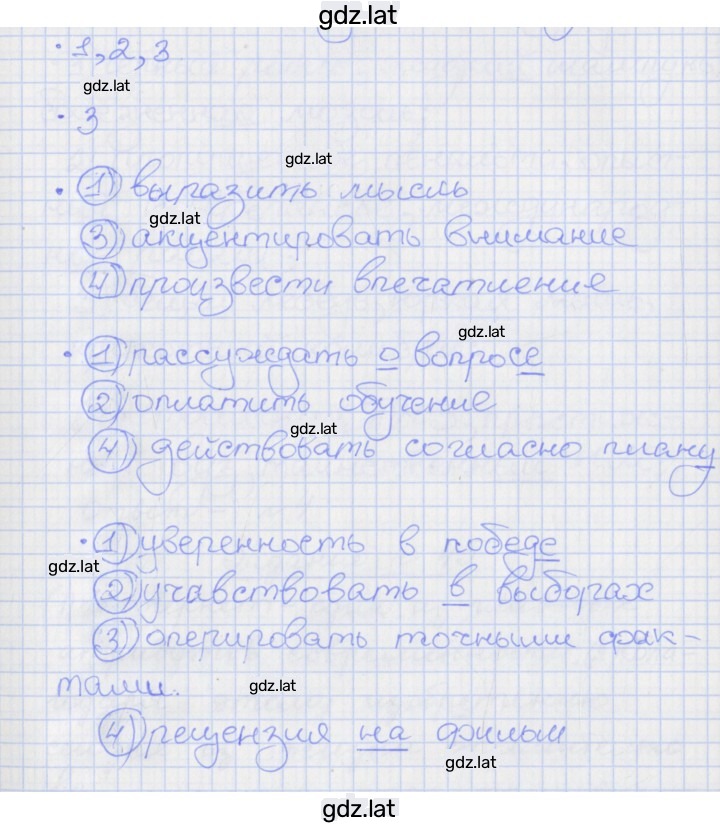 gdz.lat
· 1, 2, 3.
gdz.lat
· 3
gdz.lat
· 1) выразить мысль
gdz.lat
3) акцентировать внимание
4) произвести впечатление
gdz.lat
· 1) рассуждать о вопросе
2) оплатить обучение
gdz.lat
4) действовать согласно плану
· 1) уверенность в победе
gdz.lat
2) учавствовать в выборах
3) оперировать точными фак-
тами.
gdz.lat
4) рецензия на фильм
gdz.lat
gdz.lat